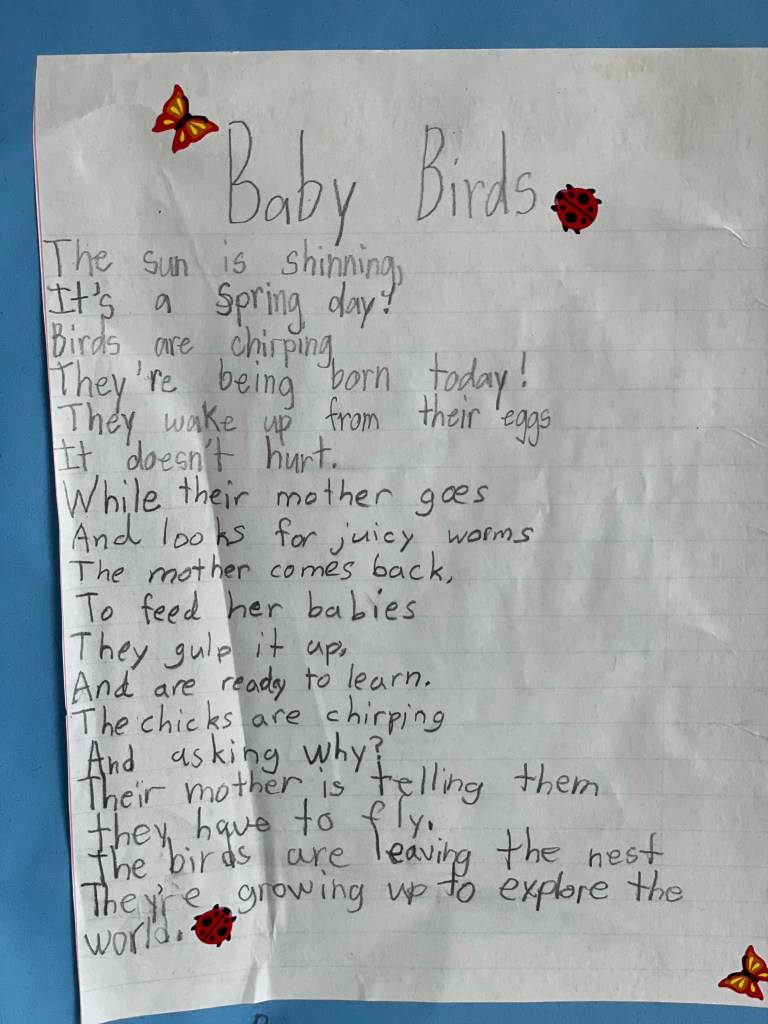 Baby Birds
The sun is shinning,
It's a spring day!
Birds are chirping
They're being born today!
They wake up from their eggs
It doesn't hurt.
While their mother goes
And looks for juicy worms
The mother comes back,
To feed her babies
They gulp it up,
And are ready to learn.
The chicks are chirping
And asking why?
Their mother is telling them
they have to fly.
The birds are leaving the nest
They're growing up to explore the
world.